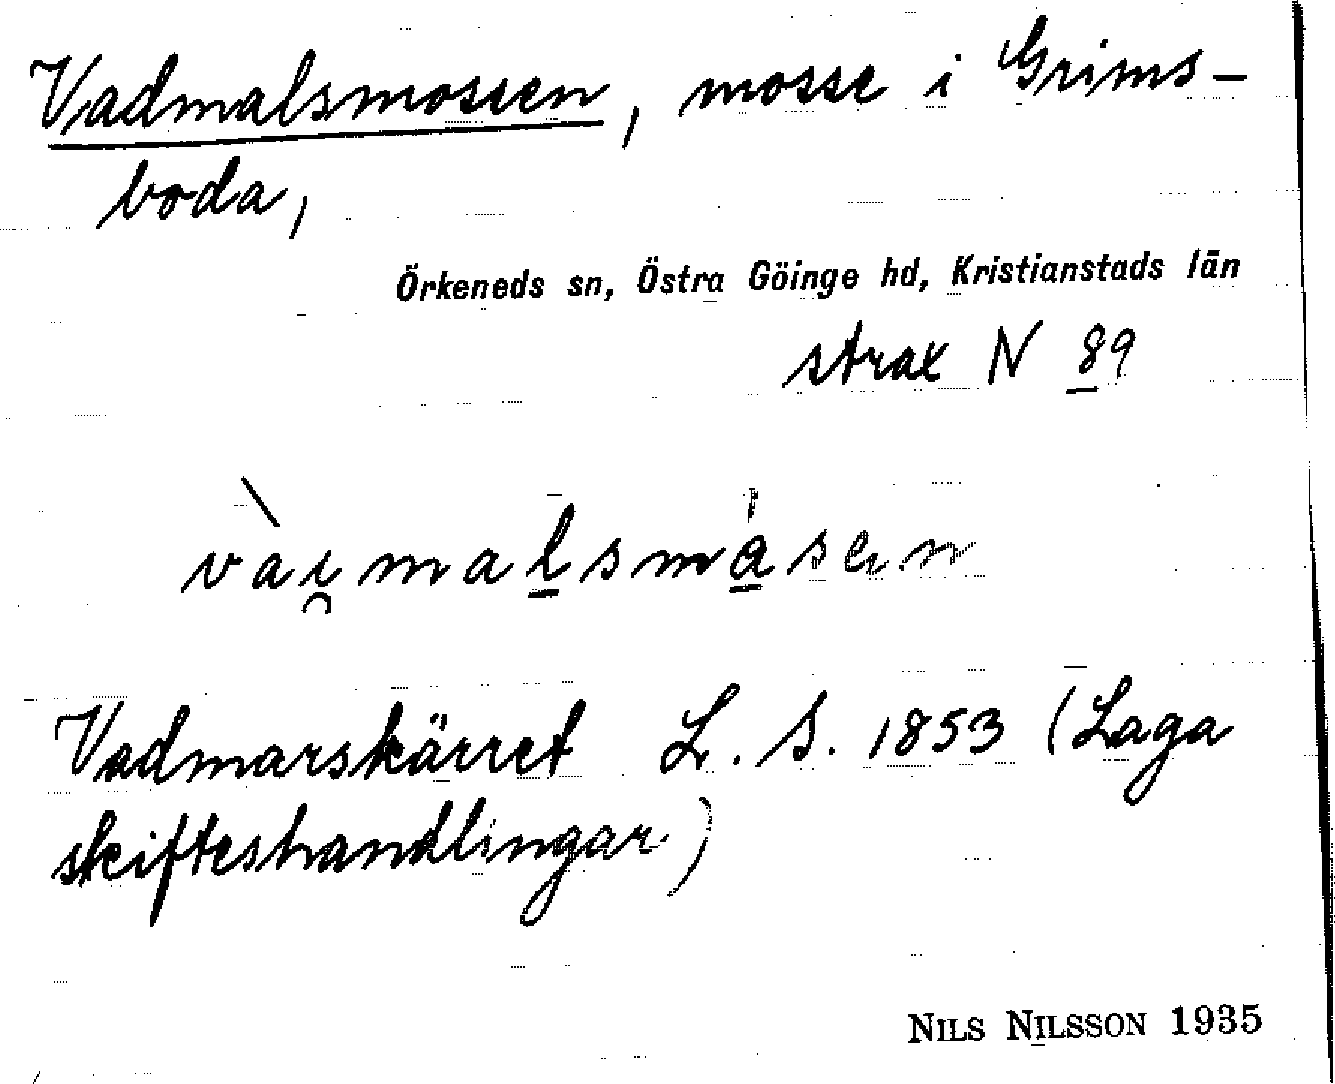 Vadmalsmossen, mosse i Grims-
boda,
Örkeneds sn, Östra Göinge hd, Kristianstads län
strax N 89
vàı̯malsmåsen
Vadmarskärret L. S. 1853 (Laga
skifteshandlingar)
NILS NILSSON 1935